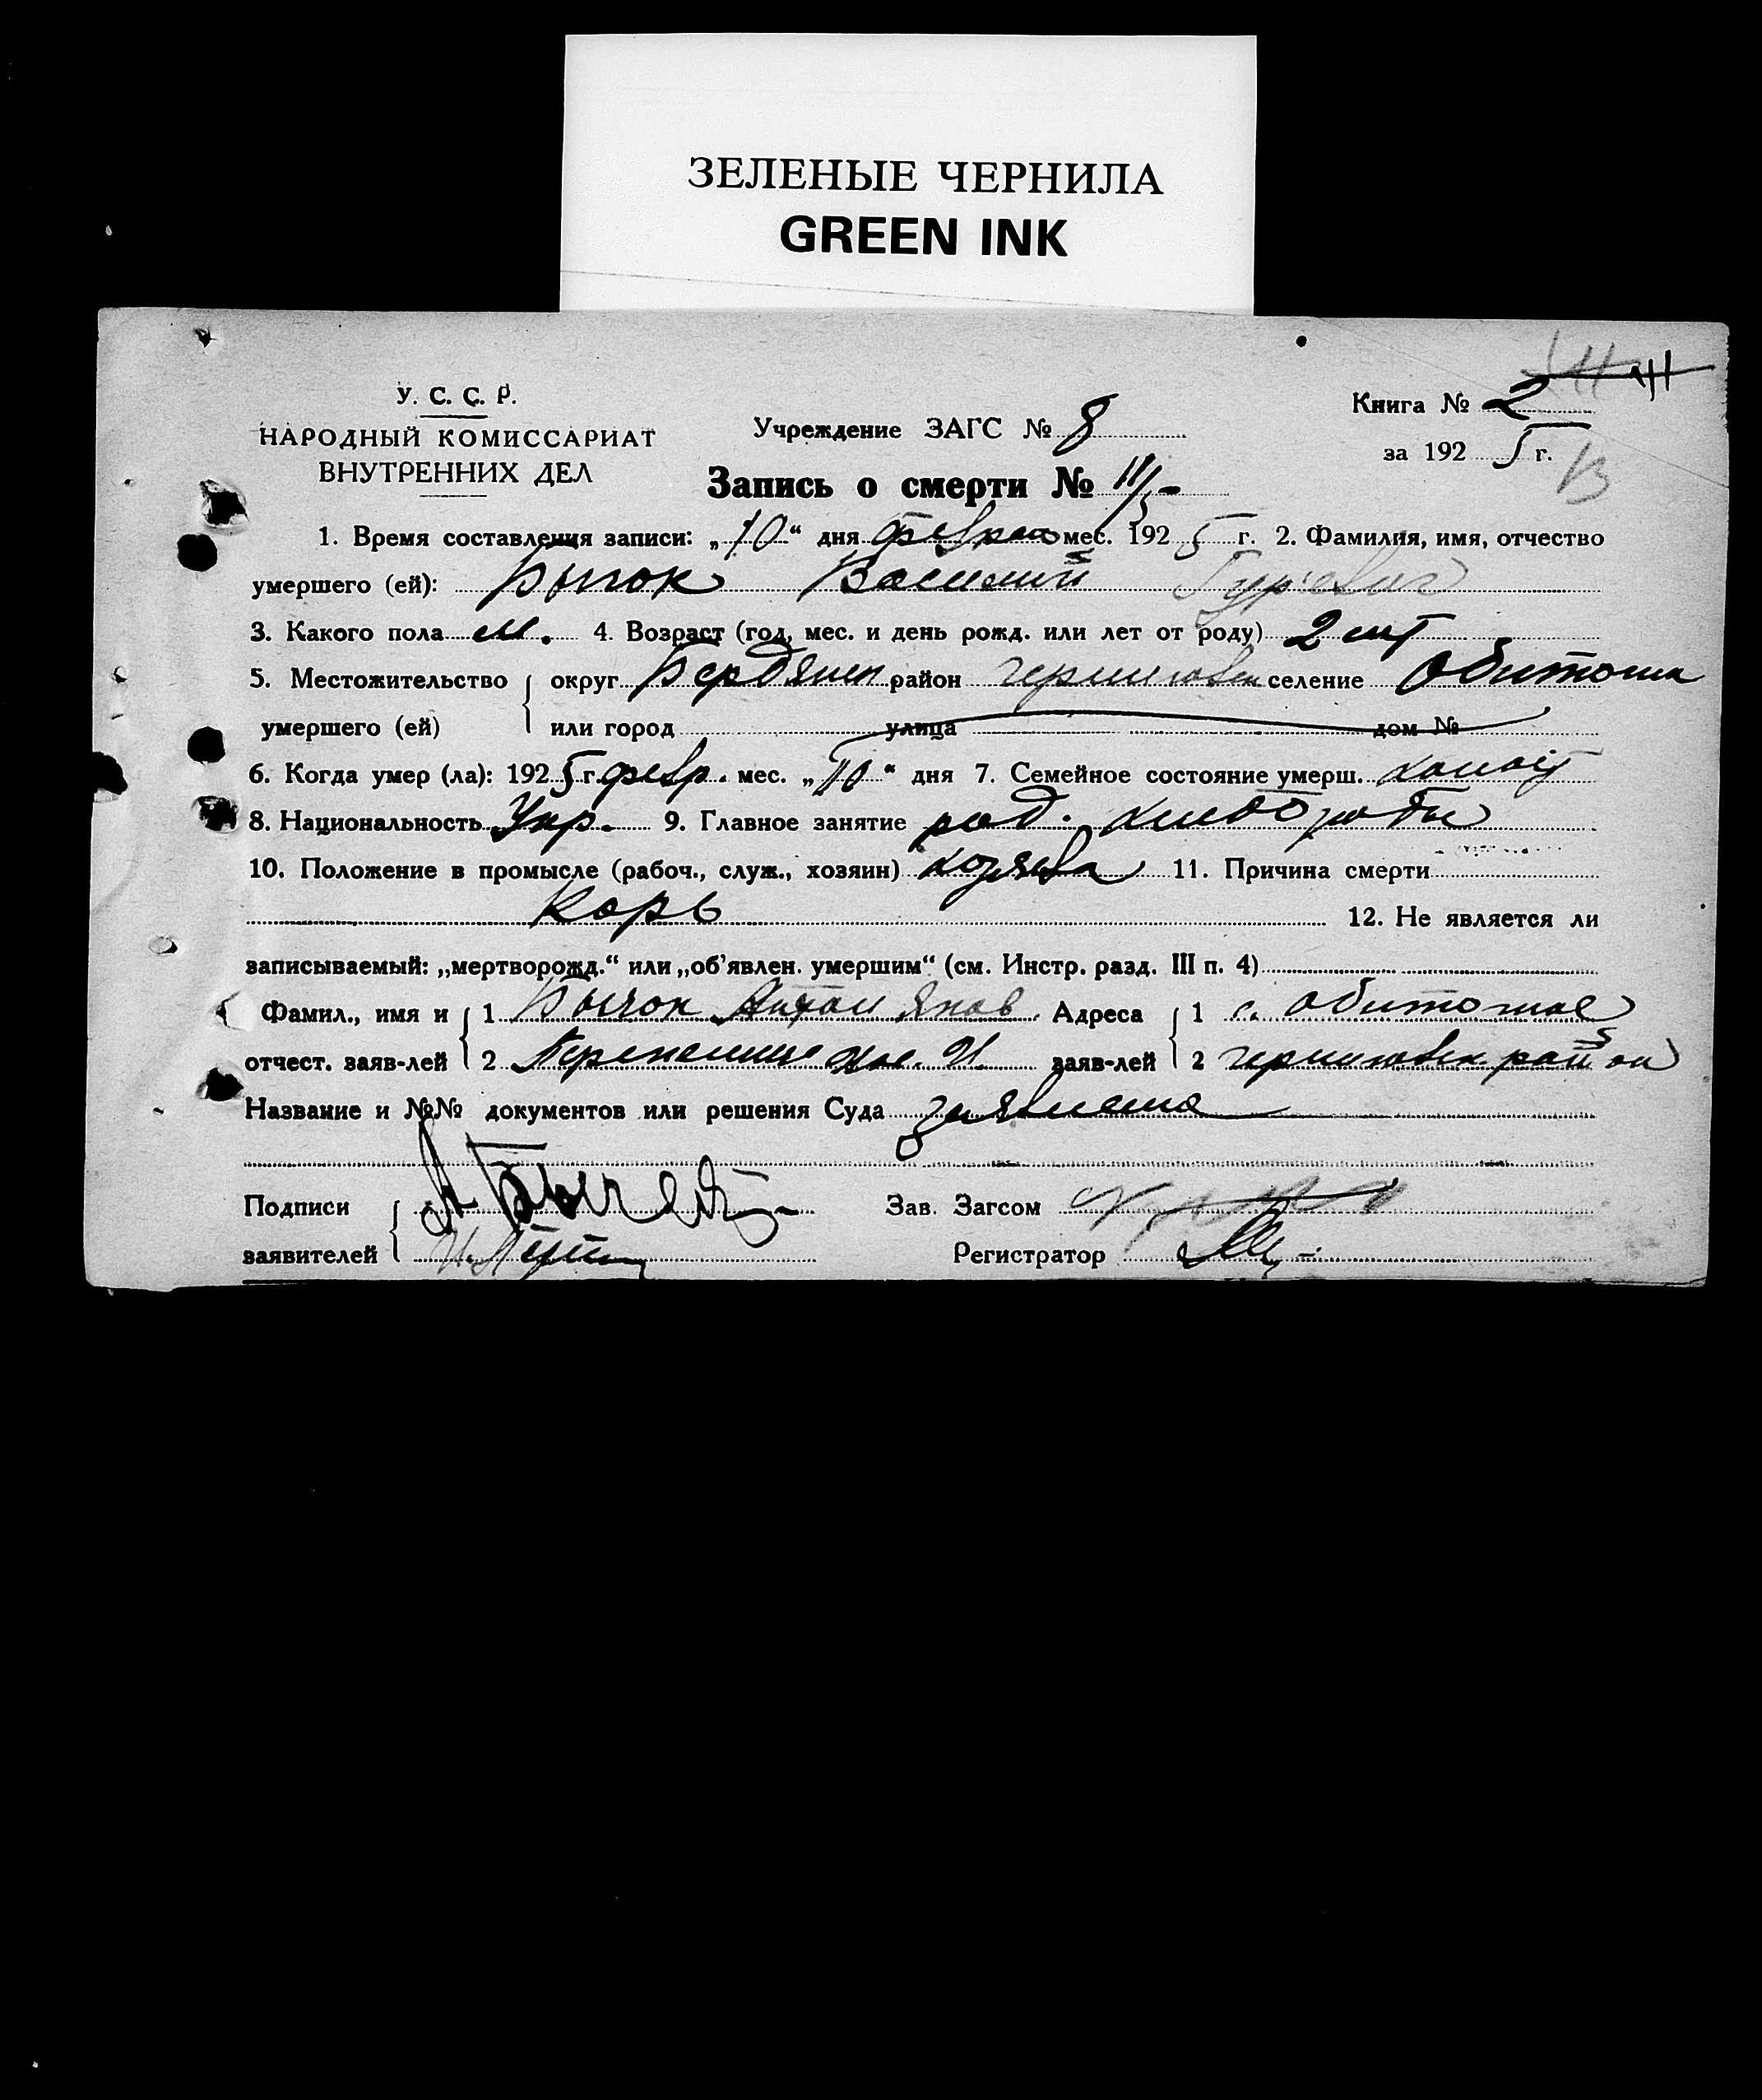 ЗЕЛЕНЫЕ ЧЕРНИЛА
GREEN INK
У. С. С. Р.
НАРОДНЫЙ КОМИССАРИАТ
ВНУТРЕННИХ ДЕЛ
Учреждение ЗАГС № 8
Книга № 2
за 1925 г.
Запись о смерти № 11/
1. Время составления записи: „10“ дня феврал мес. 1925 г. 2. Фамилия, имя, отчество
умершего (ей): Бычок Василий Гурьевич
3. Какого пола м. 4. Возраст (год, мес. и день рожд. или лет от роду) 2 лет
5. Местожительство округ Бердянск район черниговск селение Обиточна
умершего (ей) или город улица дом №
6. Когда умер (ла): 1925 г. февр. мес. „10“ дня 7. Семейное состояние умерш. холост
8. Национальность Укр. 9. Главное занятие род. хлеборобы
10. Положение в промысле (рабоч., служ., хозяин) хозяева 11. Причина смерти
Корь 12. Не является ли
записываемый: „мертворожд.“ или „об'явлен. умершим“ (см. Инстр. разд. III п. 4)
Фамил., имя и 1 Бычок Яков Адреса 1 с. Обиточное
отчест. заяв-лей 2 И. заяв-лей 2 черниговск. район
Название и №№ документов или решения Суда
Подписи Зав. Загсом
заявителей Регистратор